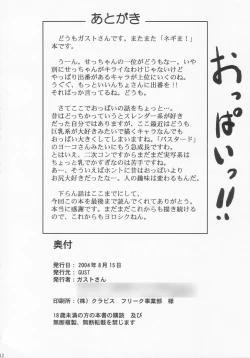 あとがき
どうもガストさんです。またまた「ネギま！」
本です。
うーん。せっちゃんの一位がどうもなー。いや
別にせっちゃんがキライなわけじゃないけど
やっぱり出番があるキャラが上位にくいのね。
うぐぐ、もっといいんちょさんに出番を！！
そればっか言ってるね。
さてここでおっぱいの話をちょっと…。
昔はどっちかっていうとスレンダー系が好き
だった自分ではありますが、ここ最近はどうも
巨乳系が大好きみたいで描くキャラなんでも
おっぱい大きくしてしまいますね。「バスタード」
のヨーコさんみたいにもう急成長ですね。
とはいえ、二次コンですからまだまだ実写系は
ちょっと乳でかすぎなのは苦手ですね。
あっ、そういえばホントに昔はおっぱいより
お尻大好きだったなー。人の趣味は変わるもんだ。
下らん話はここまでにして、
今回この本を最後まで読んでくれてありがとう。
本当に感謝です。まだまだこれからも描き続ける
ので、これからもヨロシクねっ。
おっぱいっ!!
奥付
発行日：2004年8月15日
発行元：GUST
発行者：ガストさん
印刷所：（株）クラビス　フリーク事業部　様
18歳未満の方の本書の購読　及び
無断複製、無断転載を禁じます